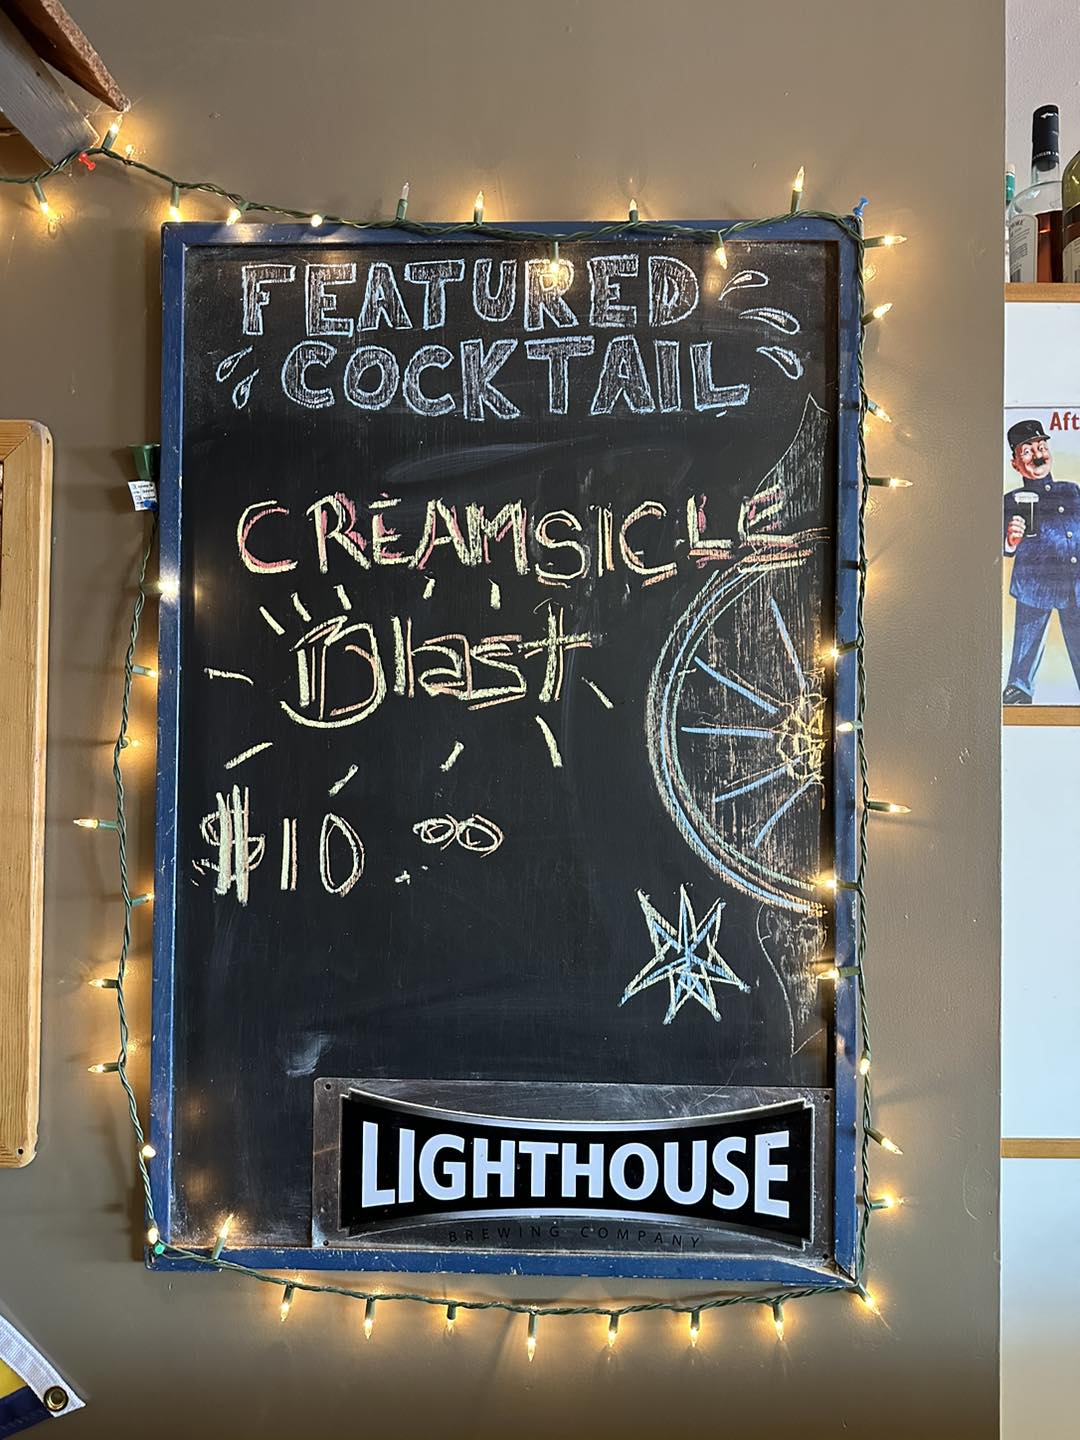 FEATURED
COCKTAIL
CREAMSICLE
Blast
$10.00
LIGHTHOUSE
BREWING COMPANY
Aft